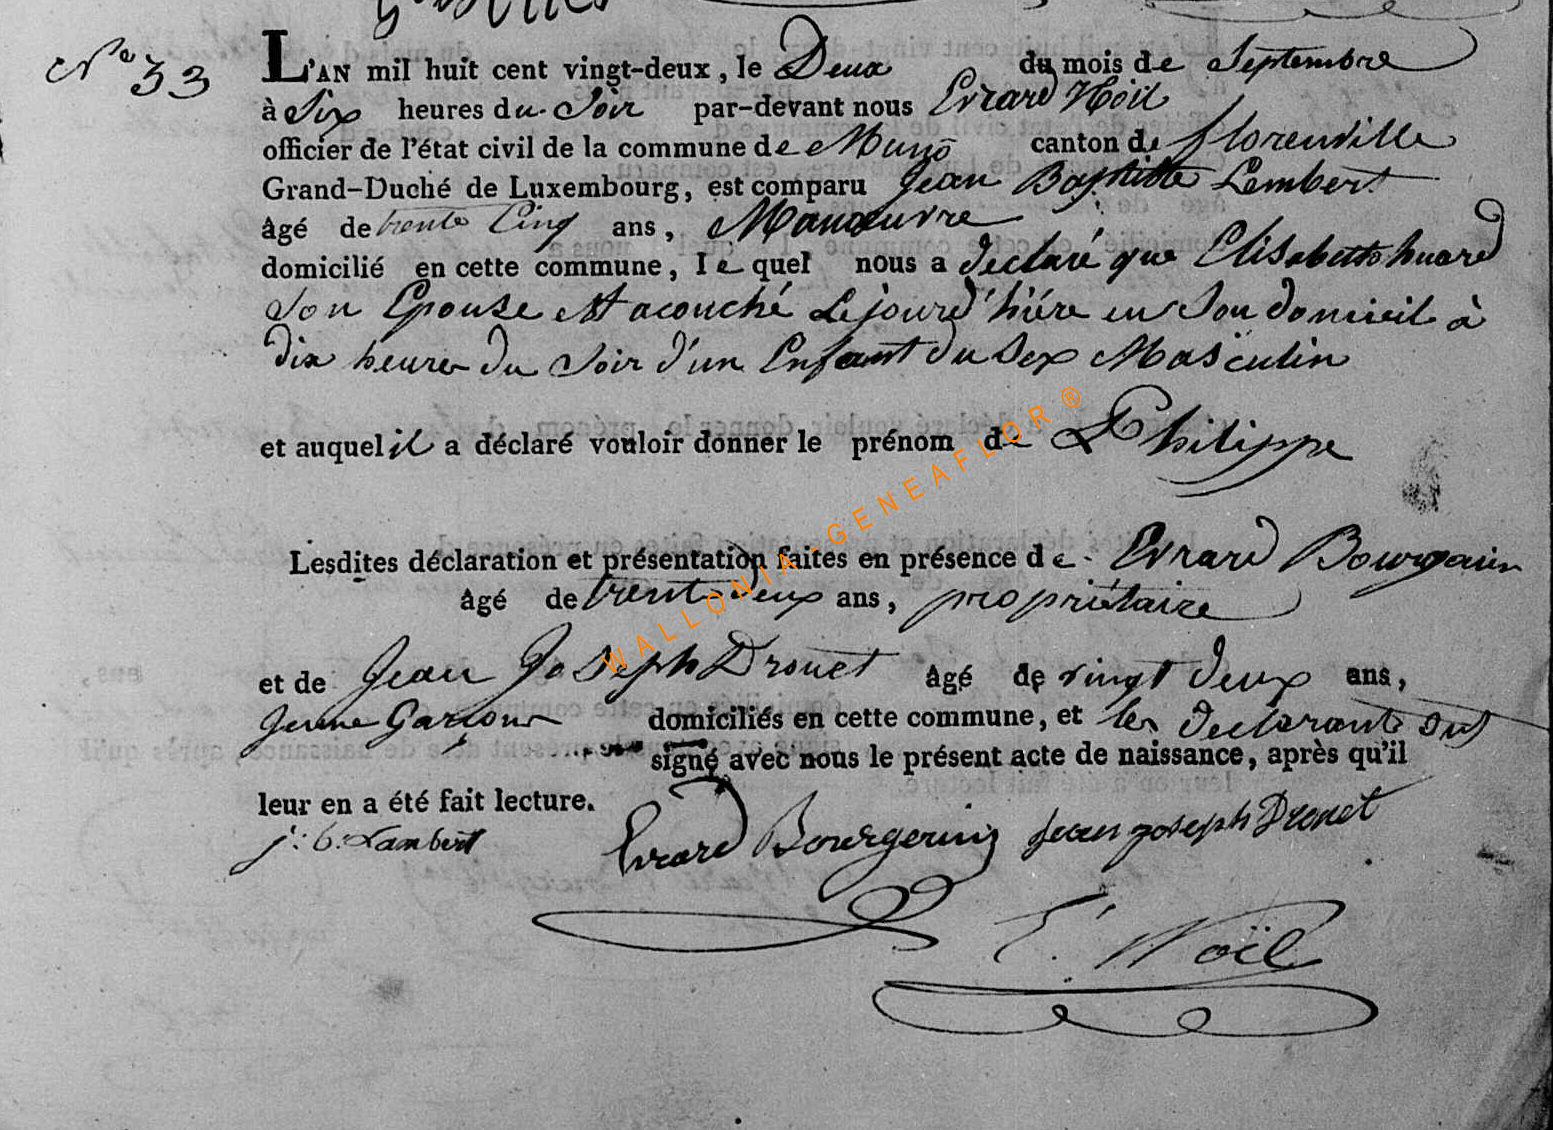 N° 33
L'AN mil huit cent vingt-deux, le Deux du mois de Septembre
à Six heures du Soir par-devant nous Evrard Noïl
officier de l'état civil de la commune de Muno canton de florenville
Grand-Duché de Luxembourg, est comparu Jean Baptiste Lembert
âgé de trente Cinq ans, Manœuvre
domicilié en cette commune, le quel nous a declaré que Elisabette huard
Son Epouse est acouché Le jourd'hiére en Son domicil à
dix heures du Soir d'un Enfant du Sex Masculin
et auquel il a déclaré vouloir donner le prénom de Philippe
Lesdites déclaration et présentation faites en présence de Evrard Bourgerin
âgé de trent deux ans, propriétaire
et de Jean Joseph Drouet âgé de vingt deux ans,
Jeune Garçons domiciliés en cette commune, et les declarants ont
signé avec nous le présent acte de naissance, après qu'il
leur en a été fait lecture.
j: b. Lambert Evrard Bourgerin Jean joseph Drouet
E. Noël
WALLONIA-GENEAFLOR ®